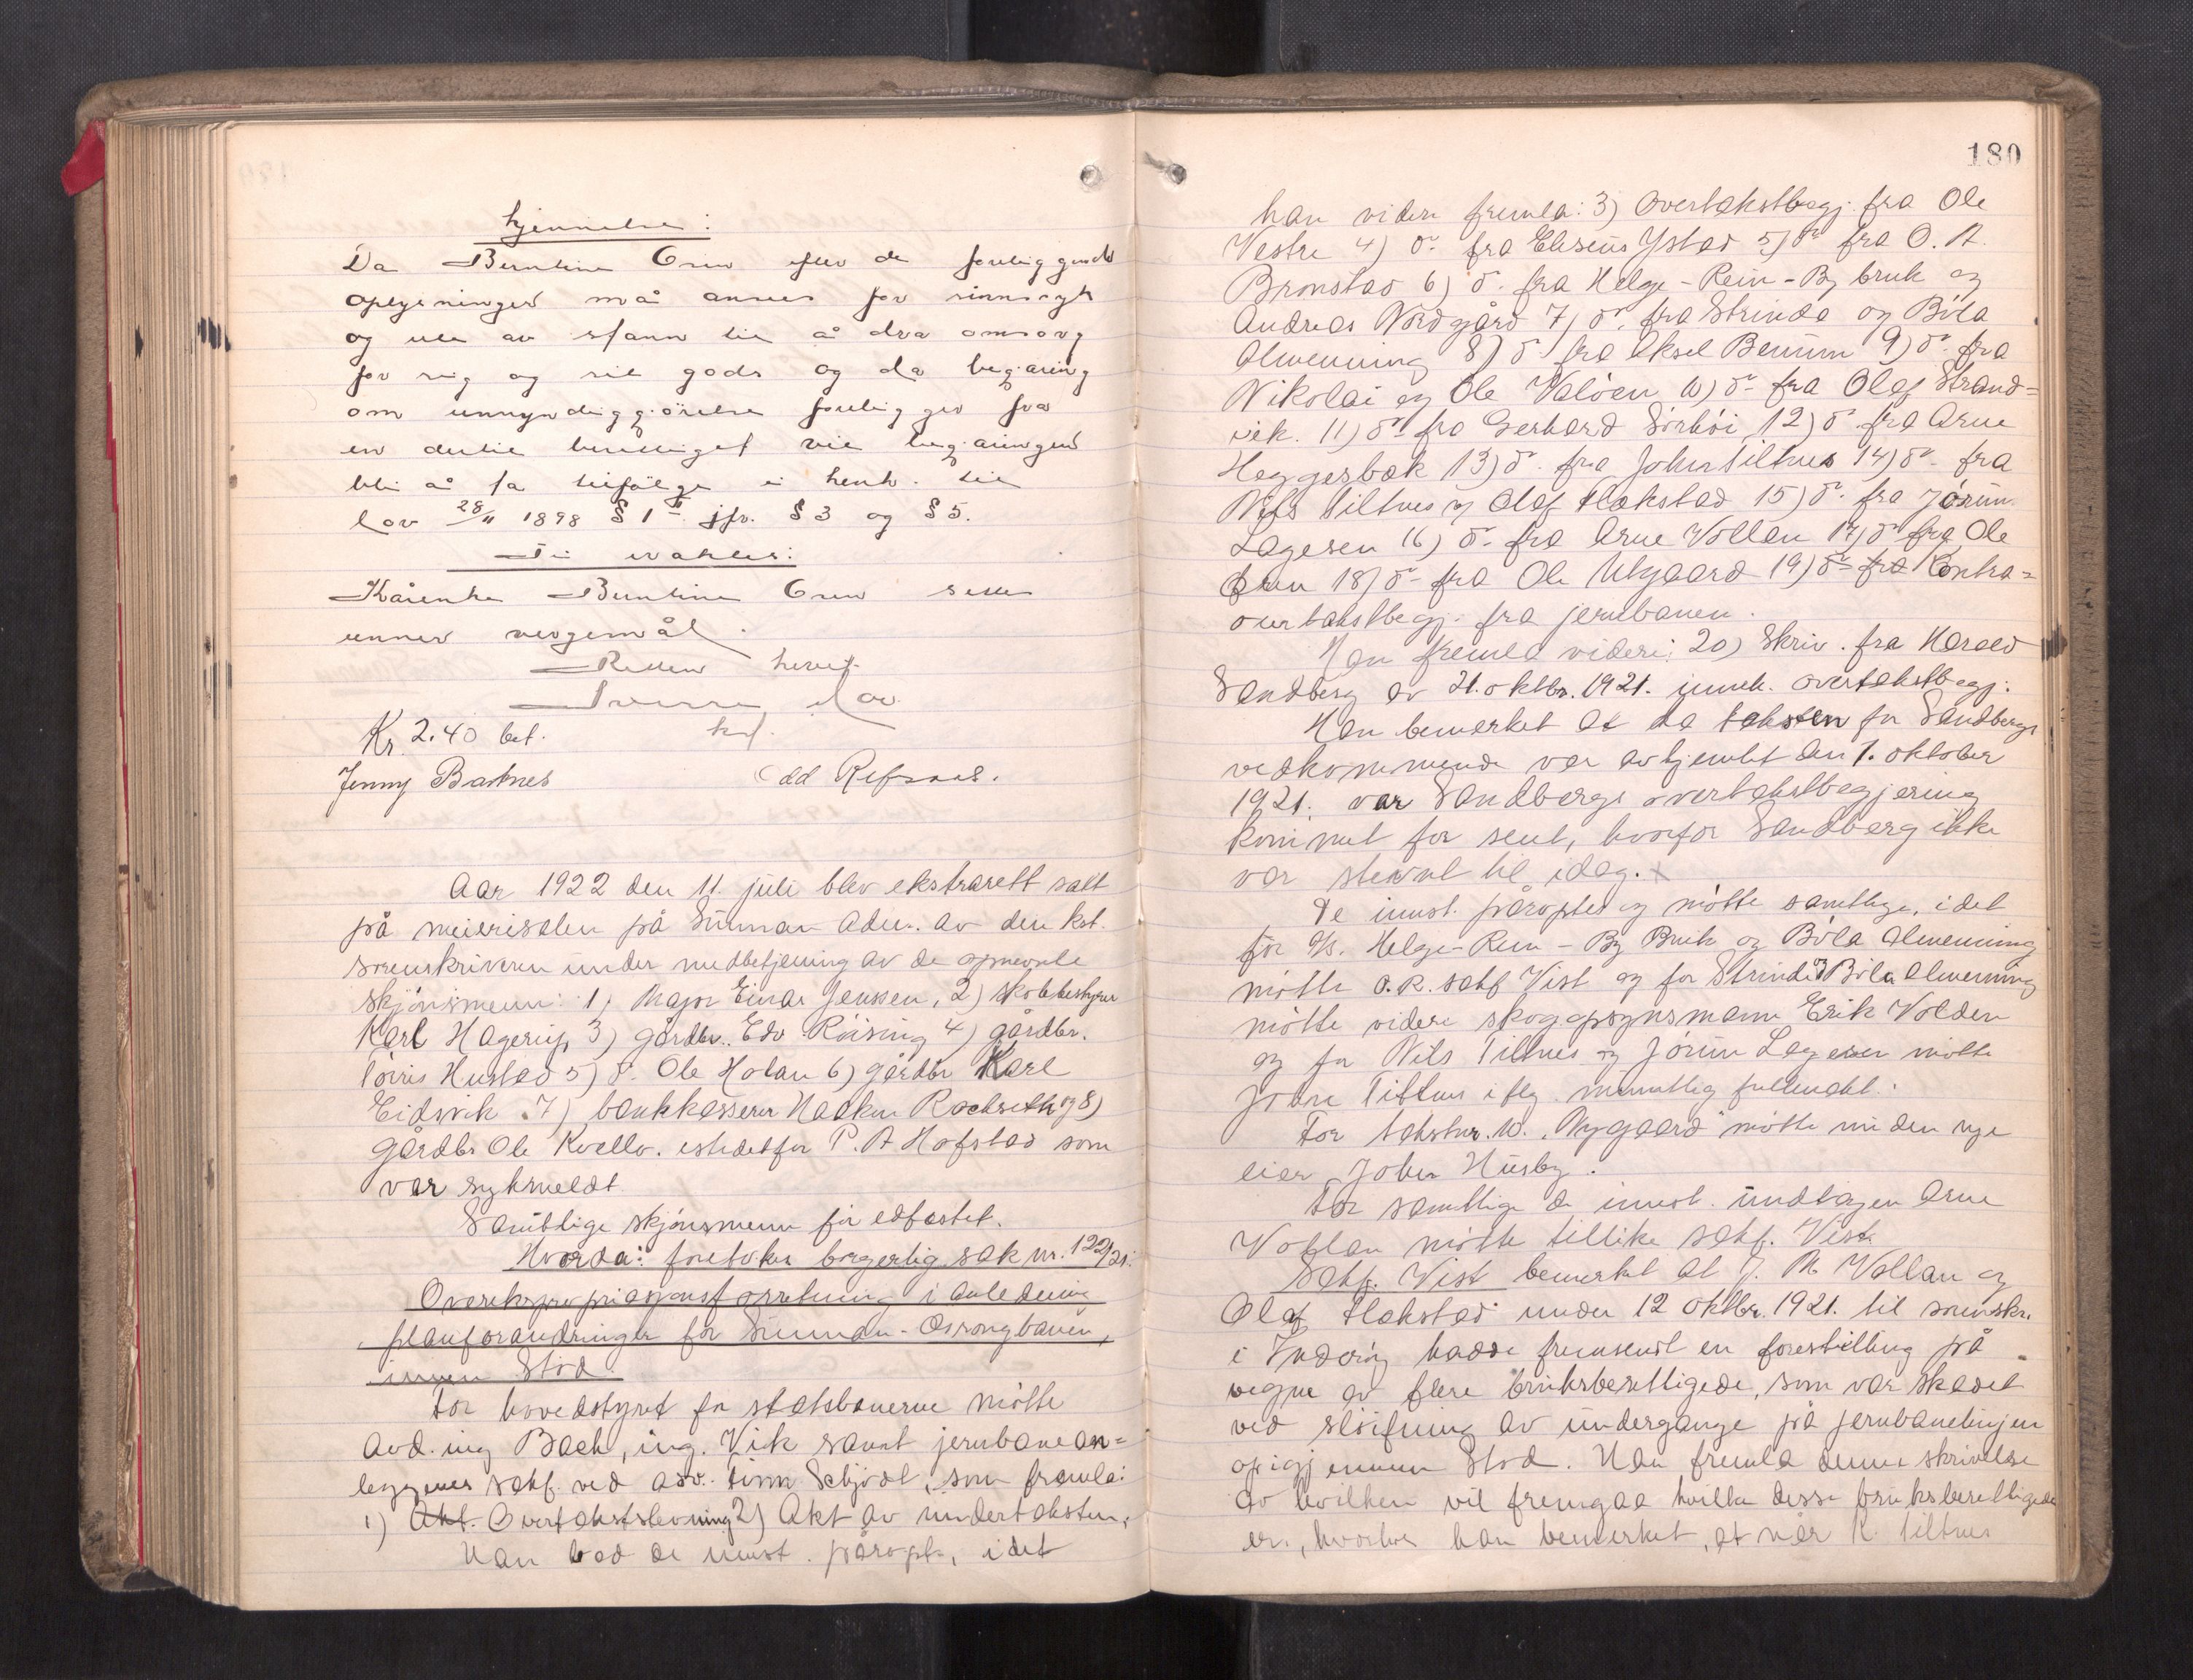 kjennelse:
Da Berntine Grin efter de foreliggende
oplysninger må ansees for sinnssyk
og ute av stann til å dra omsorg
for sig og sit gods og da begjæring
om umyndiggjörelse foreligger fra
en dertil berettiget vil begjæringen
bli å ta tilfölge i henh. til
lov 28/11 1898 § 1 jfr. § 3 og § 5.
Ti
Kårenke Berntine Grin settes
unner vergemål.
Retten hevet.
Kr. 2.40 bet.
Jenny Bartnes Odd Refsaas.
Aar 1922 den 11. juli blev ekstrarett satt
på meierisalen på Sunnan adm. av den kst.
sorenskriveren under medbetjening av de opnevnte
skjönsmenn: 1) Major Einar Jenssen, 2) skolebestyrer
Karl Hagerup 3) gårdbr. Edv Röising 4) gårdbr.
Töris Hustad 5) d. Ole Holan 6) gårdbr Karl
Eidsvik 7) bankkasserer Haakon Rochseth og 8)
gårdbr Ole Kvello. istedetfor P. A Hofstad som
var sykmeldt
Samtlige skjönsmenn för edfæstet.
Hvorda: foretokes borgerlig sak nr. 122/21.
Overekspropriasjonsforretning i anledning
planforandringer for Sunnan-Grongbanen,
innen Stod.
For hovedstyret for statsbanerne mötte
avd. ing Bach, ing. Vik samt jernbanean=
leggenes sakf. ved adv. Finn Schjödt, som fremla:
1) Akt. Overtakstslevning 2) Akt av undertaksten.
Han bad de innst. påropt, idet
180
han videre fremla: 3) Overtakstbegj. fra Ole
Vestre 4) do fra Eliseus Ystad 5) do fra O. A.
Bronstad 6) d. fra Helge-Rein-By bruk og
Andreas Nordgård 7) do fra Strinda og Böla
Almenning 8) d fra Aksel Benum 9) do fra
Nikolai og Ole Valöen 10) do fra Olaf Strand=
vik. 11) do fra Gerhard Sörhöi 12) d fra Arne
Heggesbak 13) d. fra John Tiltnes 14) do fra
Nils Tiltnes og Olaf Flakstad 15) d. fra Jörun
Lagesen 16) d. fra Arne Vollan 17) do fra Ole
18) d fra Ole Nygaard 19) do fra Kontra=
overtakstbegj. fra jernbanen.
Han fremla videre: 20) Skriv. fra Harald
Sandberg av 21. oktbr. 1921. inneh. overtakstbegj.
Han bemerket at da taksten for Sandbergs
vedkommende var avhjemlet den 1. oktober
1921. var Sandbergs overtakstbegjering
kommet for sent, hvorfor Sandberg ikke
var stevnt til idag.
De innst. påroptes og mötte samtlige, idet
for A/s. Helge-Rein-By Bruk og Böla Almenning
mötte o.r. sakf Vist og for Strinda og Böla Almenning
mötte videre skogopsynsmann Erik Volden
og for Nils Tiltnes og Jörun Lagesen mötte
John Tiltnes iflg. munntlig fullmakt.
For takstnr. 10. "Nygaard" mötte nu den nye
eier John Husby.
For samtlige de innst. undtagen Arne
Vollan mötte tillike sakf. Vist.
Sakf. Vist bemerket at J. M. Vollan og
Olaf Flakstad under 12 oktbr. 1921. til sorenskr.
i Inderöy hadde fremsendt en forestilling på
vegne av flere bruksberettigede, som var skadet
ved slöifning av undergange på jernbanelinjen
opigjennem Stod. Han fremla denne skrivelse
av hvilken vil fremgaa hvilke disse bruksberettigede
er, hvorhos han bemerket, at når N. Tiltnes